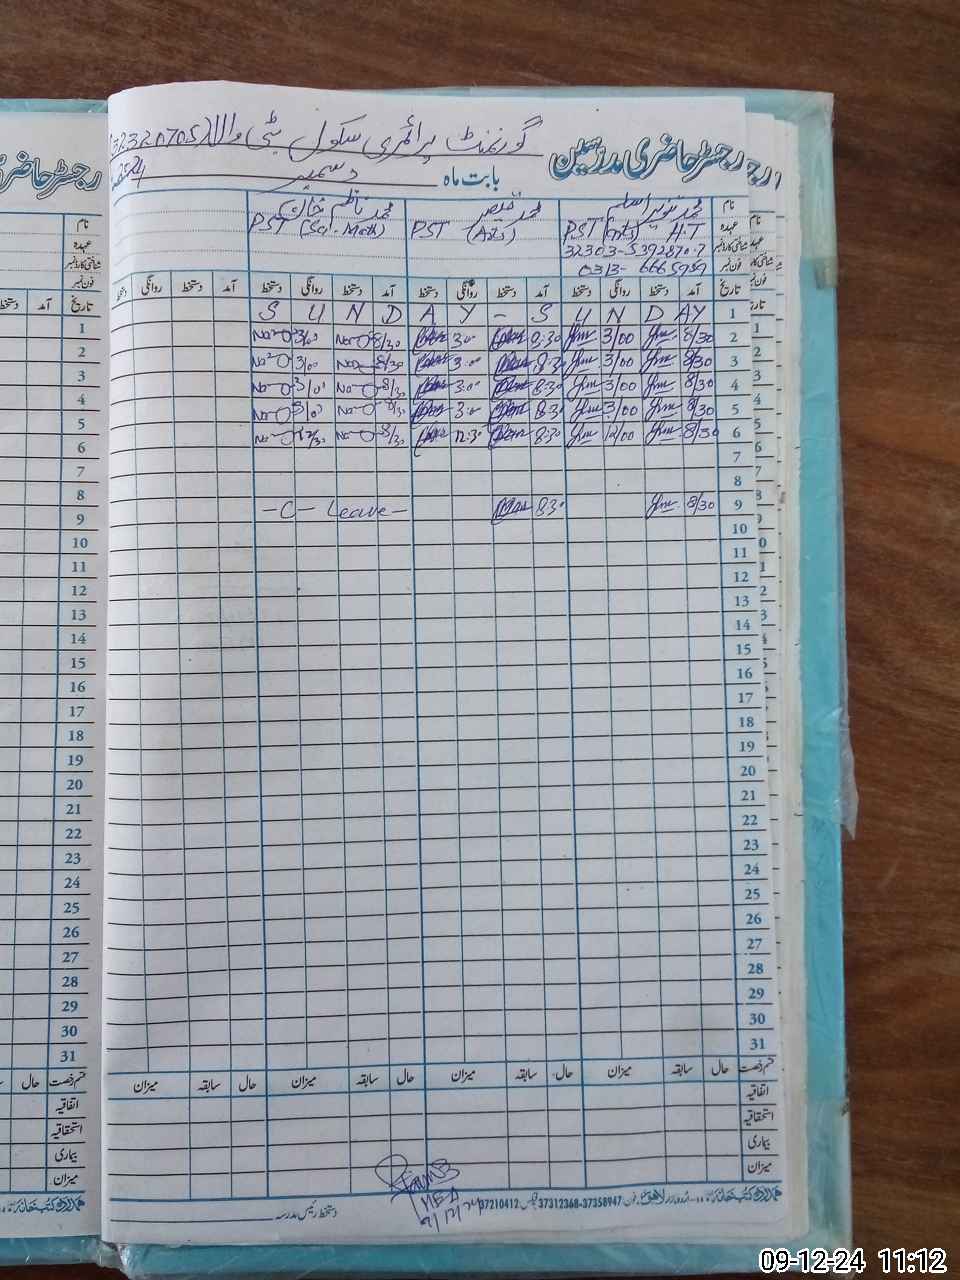 گورنمنٹ پرائمری سکول بٹی والا
رجسٹر حاضری مدرسین
بابت ماہ دسمبر 2024
نام محمد تنویر اسلم محمد محمد ناظم خان
عہدہ PST (Arts) H.T PST (Arts) PST (Sci-Math)
شناختی کارڈ نمبر 32303-5392870-7
فون نمبر 0313-6665959
تاریخ آمد دستخط روانگی دستخط آمد دستخط روانگی دستخط آمد دستخط روانگی دستخط آمد دستخط روانگی دستخط
1 S U N D A Y - S U N D A Y
2 8/30 3/00 8:30 3:00 8/30 3/00
3 8/30 3/00 8:30 3:00 8/30 3/00
4 8/30 3/00 8:30 3:00 8/30 3/0
5 8/30 3/00 8:30 3:0 8/30 3/0
6 8/30 12/00 8:30 12:30 8/30 12/30
7
8
9 8/30 8:30 -C- Leave-
10
11
12
13
14
15
16
17
18
19
20
21
22
23
24
25
26
27
28
29
30
31
قسم رخصت حال سابقہ میزان حال سابقہ میزان حال سابقہ میزان حال سابقہ میزان
اتفاقیہ
استحقاقیہ
بیماری
میزان
MEA
دستخط رئیس مدرسہ
فون 37312368-37358947 فیکس 37210412
رجسٹر حاضری
نام
عہدہ
شناختی کارڈ نمبر
فون نمبر
تاریخ آمد دستخط
1
2
3
4
5
6
7
8
9
10
11
12
13
14
15
16
17
18
19
20
21
22
23
24
25
26
27
28
29
30
31
قسم رخصت حال
اتفاقیہ
استحقاقیہ
بیماری
میزان
09-12-24 11:12